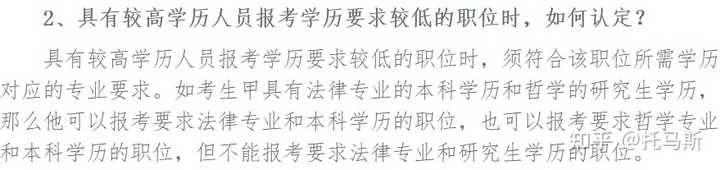 2、具有较高学历人员报考学历要求较低的职位时，如何认定？
具有较高学历人员报考学历要求较低的职位时，须符合该职位所需学历
对应的专业要求。如考生甲具有法律专业的本科学历和哲学的研究生学历，
那么他可以报考要求法律专业和本科学历的职位，也可以报考要求哲学专业
和本科学历的职位，但不能报考要求法律专业和研究生学历的职位。
知乎 @托马斯